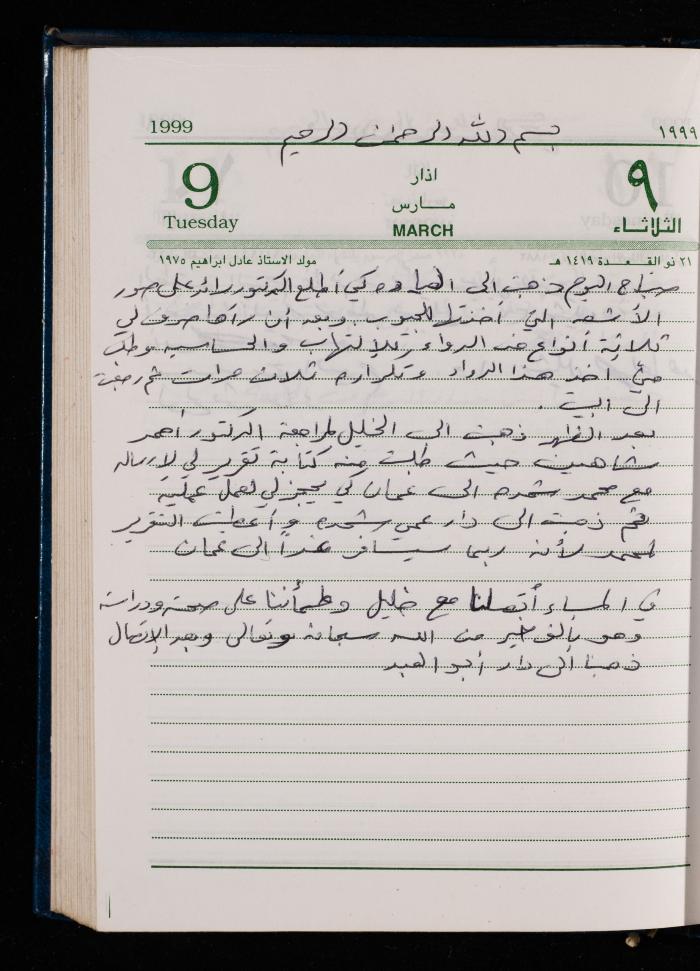 1999
بسم الله الرحمن الرحيم
١٩٩٩
9
Tuesday
اذار
مـــارس
MARCH
٩
الثلاثـاء
مولد الاستاذ عادل ابراهيم ١٩٧٥
٢١ ذو القـعـــدة ١٤١٩ هـ
صباح اليوم ذهبت الى العيادة كي أطلع الدكتور رائد على صور
الأشعة التي أخذتها للجيوب وبعد أن رآها صرف لي
ثلاثة أنواع من الدواء للإلتهاب والحساسيه وطلب
مني اخذ هذا الدواء وتكراره ثلاث مرات ثم رجعت
الى البيت .
بعد الظهر ذهبت الى الخليل لمراجعة الدكتور أحمد
شاهين حيث طلبت منه كتابة تقرير لي لإرساله
مع محمد شحده الى عمان كي يحجز لي لعمل عملية
ثم ذهبت الى دار عمي شحده وأعطيت التقرير
لمحمد لأنه ربما سيسافر غداً الى عمان
في المساء أتصلنا مع خليل وطمأننا على صحته ودراسته
وهو بألف خير من الله سبحانه وتعالى وبعد الإتصال
ذهبنا الى دار أبو العبد